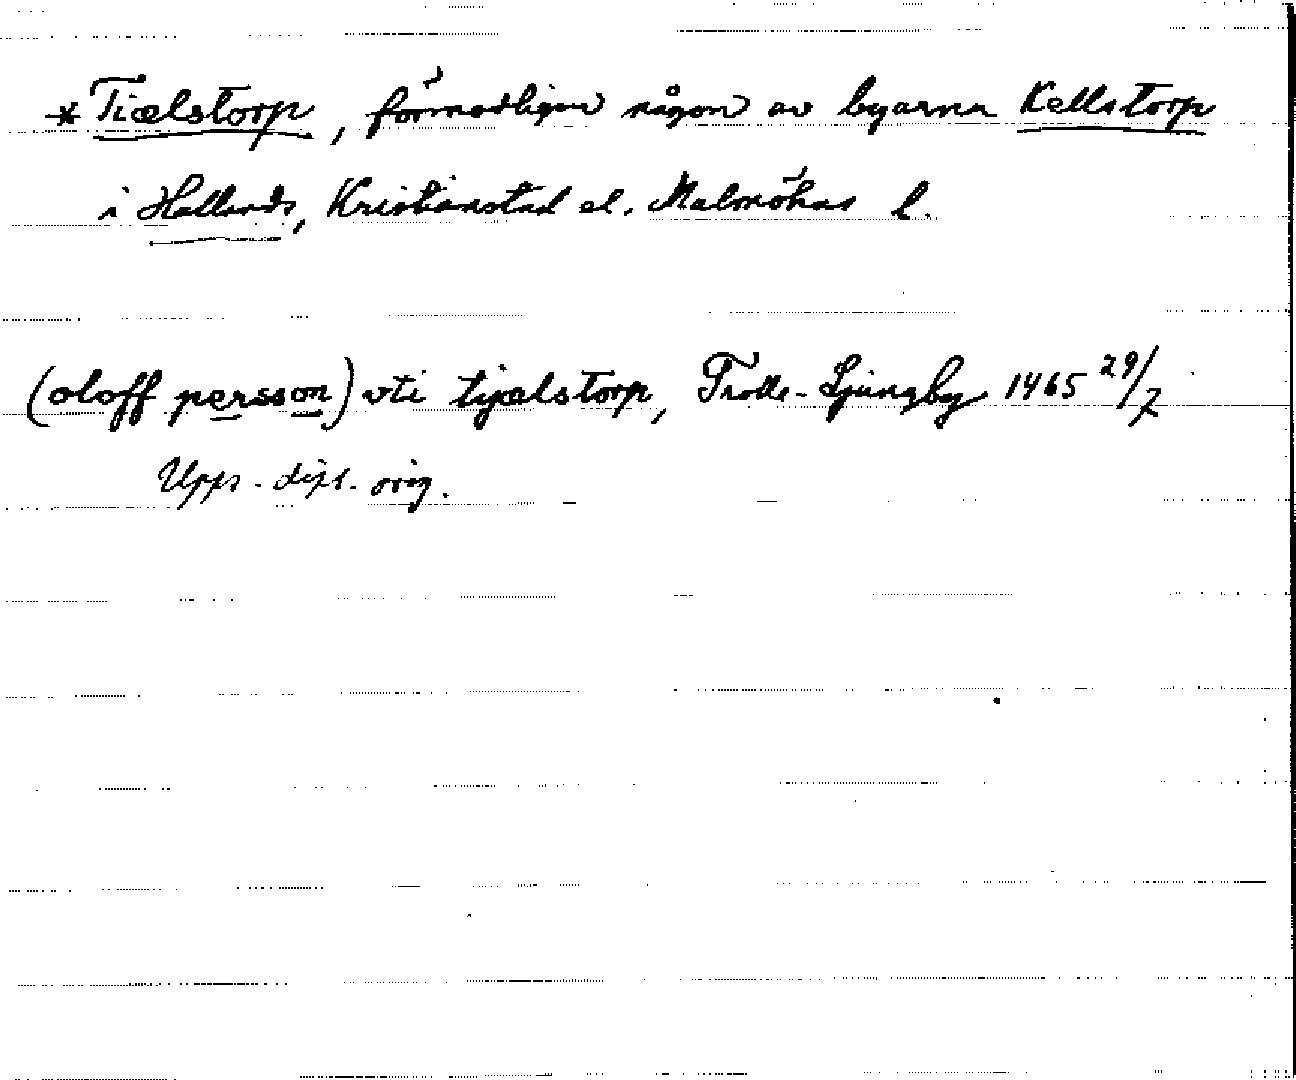 * Tiælstorp, förmodligen någon av byarna Kellstorp
i Hallands, Kristianstad el. Malmöhus l.
(oloff persson) vti tyælstorp, Trolle-Ljungby 1465 29/7
Upps. dipl. orig.